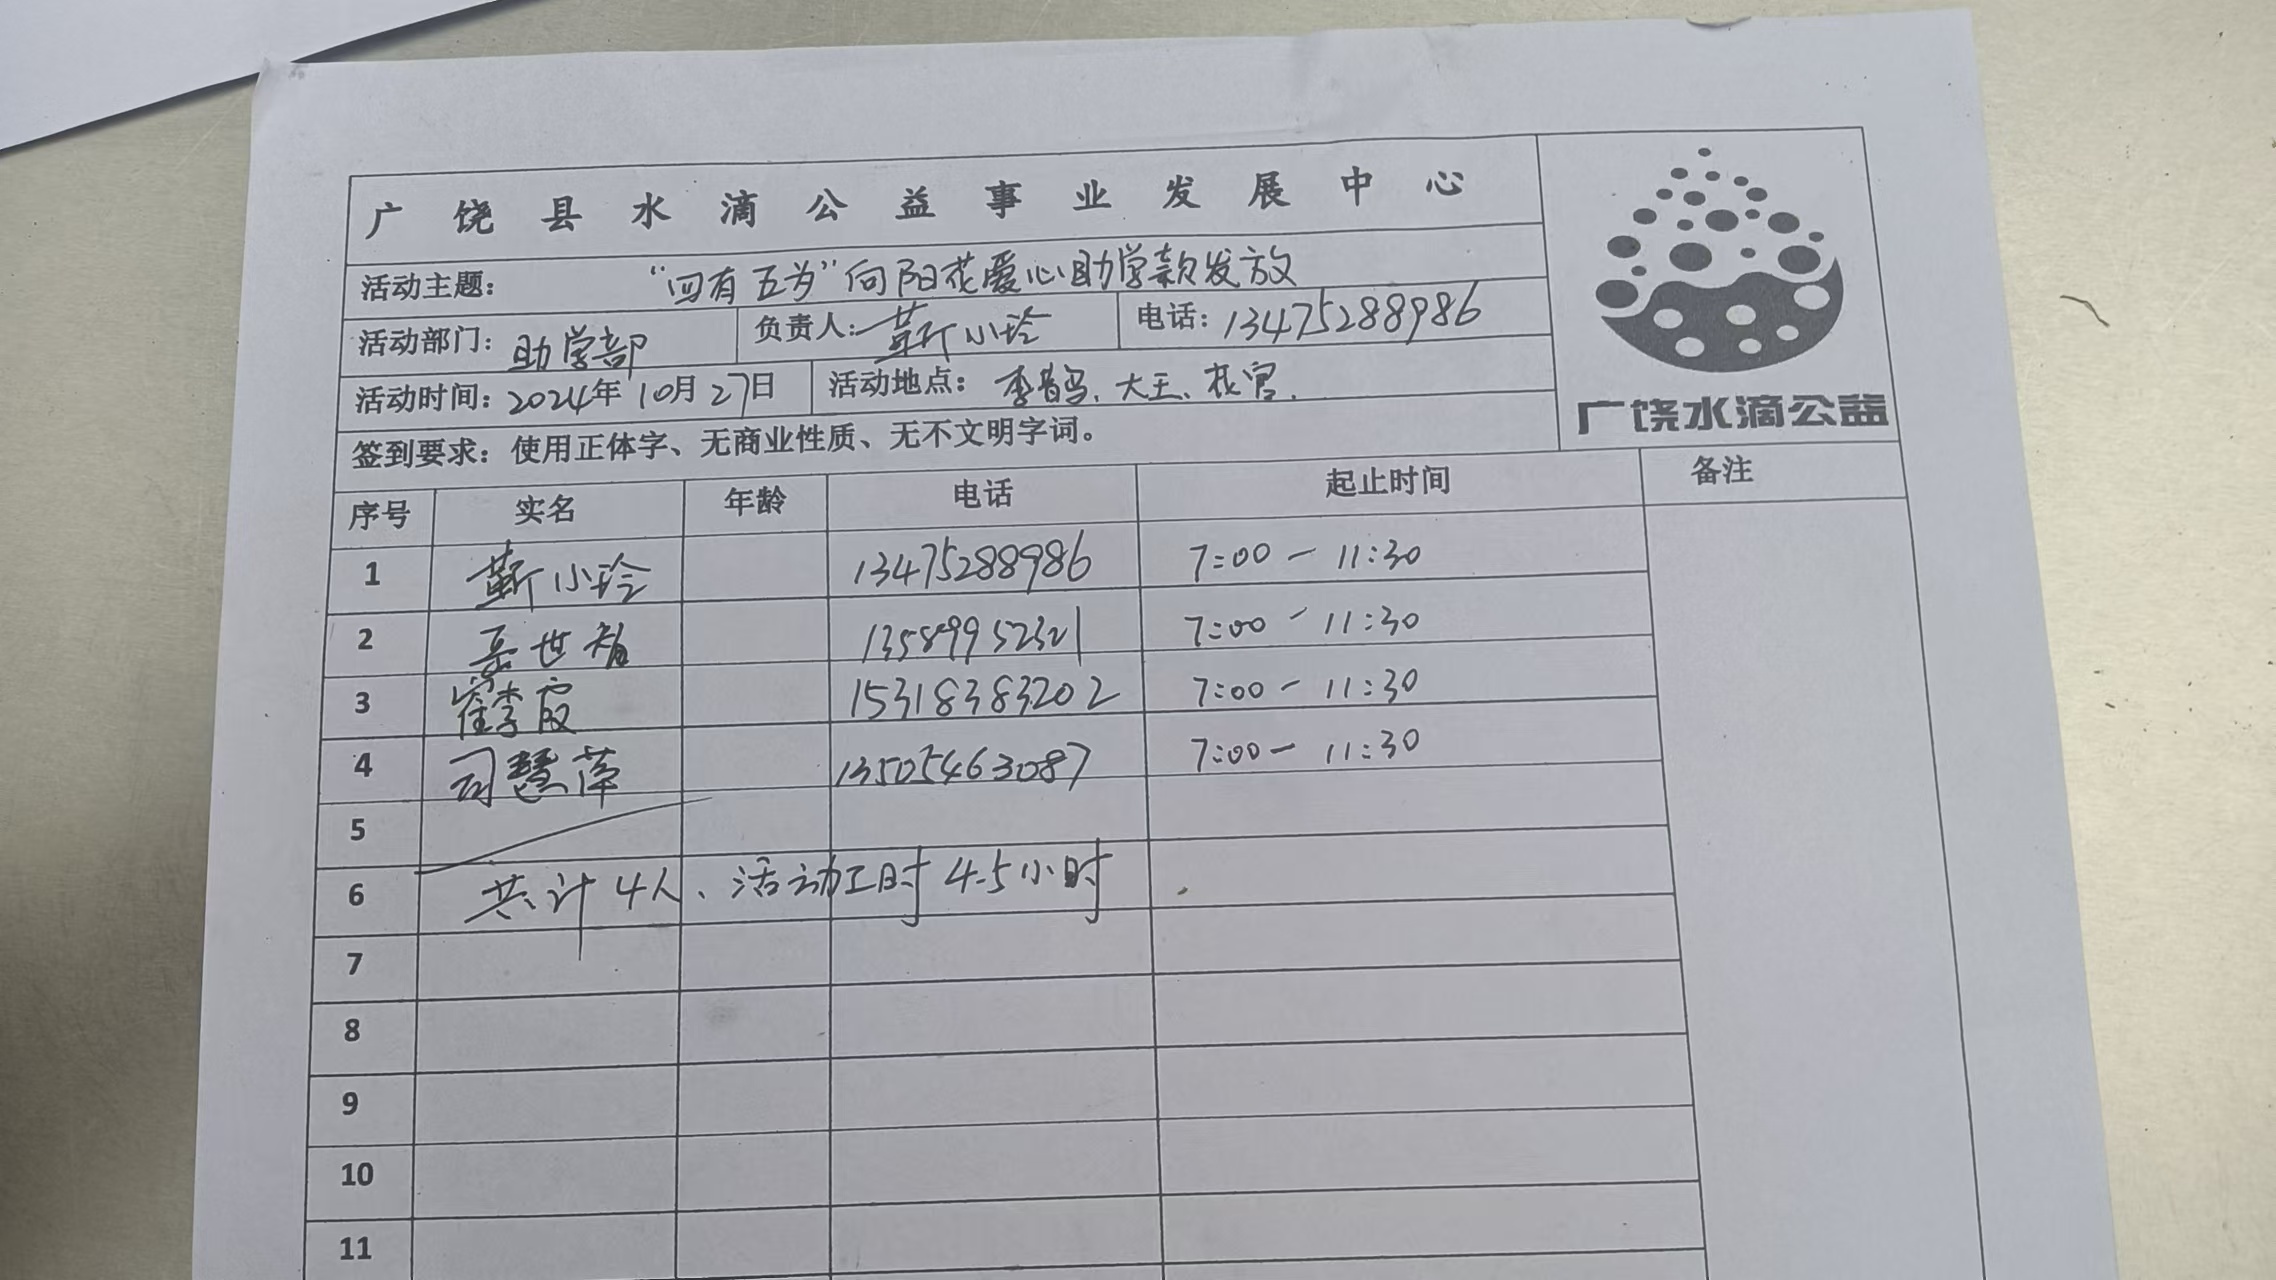 广饶县水滴公益事业发展中心
活动主题： “四有五为”向阳花爱心助学款发放
活动部门：助学部 负责人：靳小玲 电话：13475288986
活动时间：2024年10月27日 活动地点：李鹊、大王、花官.
广饶水滴公益
签到要求：使用正体字、无商业性质、无不文明字词。
序号 实名 年龄 电话 起止时间 备注
1 靳小玲 13475288986 7:00 — 11:30
2 岳世智 13589952321 7:00 — 11:30
3 崔李霞 15318383202 7:00 — 11:30
4 司慧萍 13505463087 7:00 — 11:30
5
6 共计4人、活动工时4.5小时
7
8
9
10
11